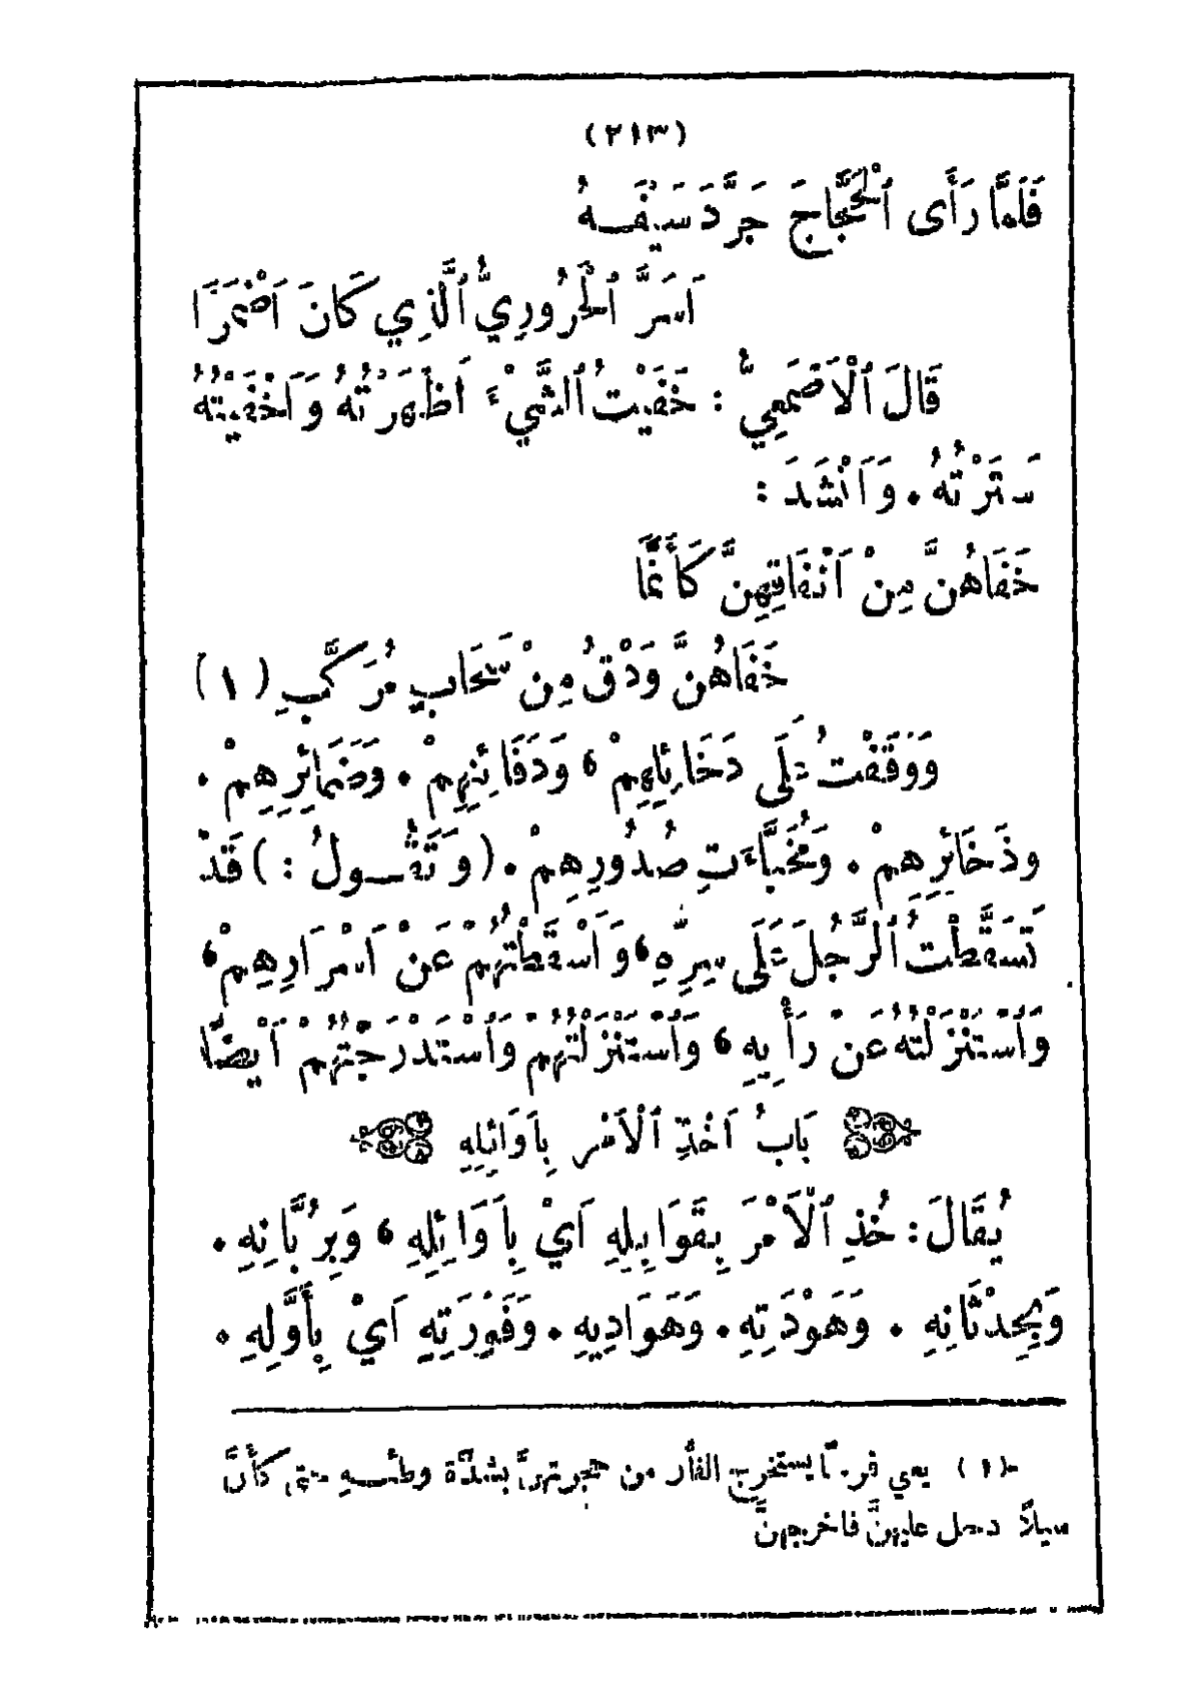 (٢١٣)
فَلَمَّا رَأَى ٱلْحَجَّاجَ جَرَّدَ سَيْفَـهُ
اَسَرَّ ٱلْحَرُورِيُّ ٱلَّذِي كَانَ اَضْمَرَا
قَالَ ٱلْاَصْمَعِيُّ : خَفَيْتُ ٱلشَّيْءَ اَظْهَرْتُهُ وَاَخْفَيْتُهُ
سَتَرْتُهُ . وَاَنْشَدَ :
خَفَاهُنَّ مِنْ اَنْفَاقِهِنَّ كَأَنَّمَا
خَفَاهُنَّ وَدْقٌ مِنْ سَحَابٍ مُرَكَّبِ (١)
وَوَقَفْتُ عَلَى دَخَائِلِهِمْ ، وَدَفَائِنِهِمْ . وَضَمَائِرِهِمْ .
وذَخَائِرِهِمْ . وَمُخَبَّاءَتِ صُدُورِهِمْ . (وَتَقُــولُ :) قَدْ
تَسَقَّطْتُ ٱلرَّجُلَ عَلَى سِرِّهِ ، وَاَسْقَطْتُهُمْ عَنْ اَسْرَارِهِمْ ،
وَاَسْتَنْزَلْتُهُ عَنْ رَأْيِهِ ، وَاَسْتَنْزَلْتُهُمْ وَاَسْتَدْرَجْتُهُمْ اَيْضًا
بَابُ اَخْذِ ٱلْاَمْرِ بِاَوَائِلِهِ
يُقَالَ : خُذِ ٱلْاَمْرَ بِقَوَابِلِهِ اَيْ بِاَوَائِلِهِ ، وَبِرُبَّانِهِ .
وَبِحِدْثَانِهِ . وَهَوْدَتِهِ . وَهَوَادِيهِ . وَفَوْرَتِهِ اَيْ بِأَوَّلِهِ .
(١) يعني فرسًا يستخرج الفأر من حجرتهنَّ بشدَّة وطئــهِ حتى كأنَّ
سيلاً دخل عليهنَّ فاخرجهنَّ